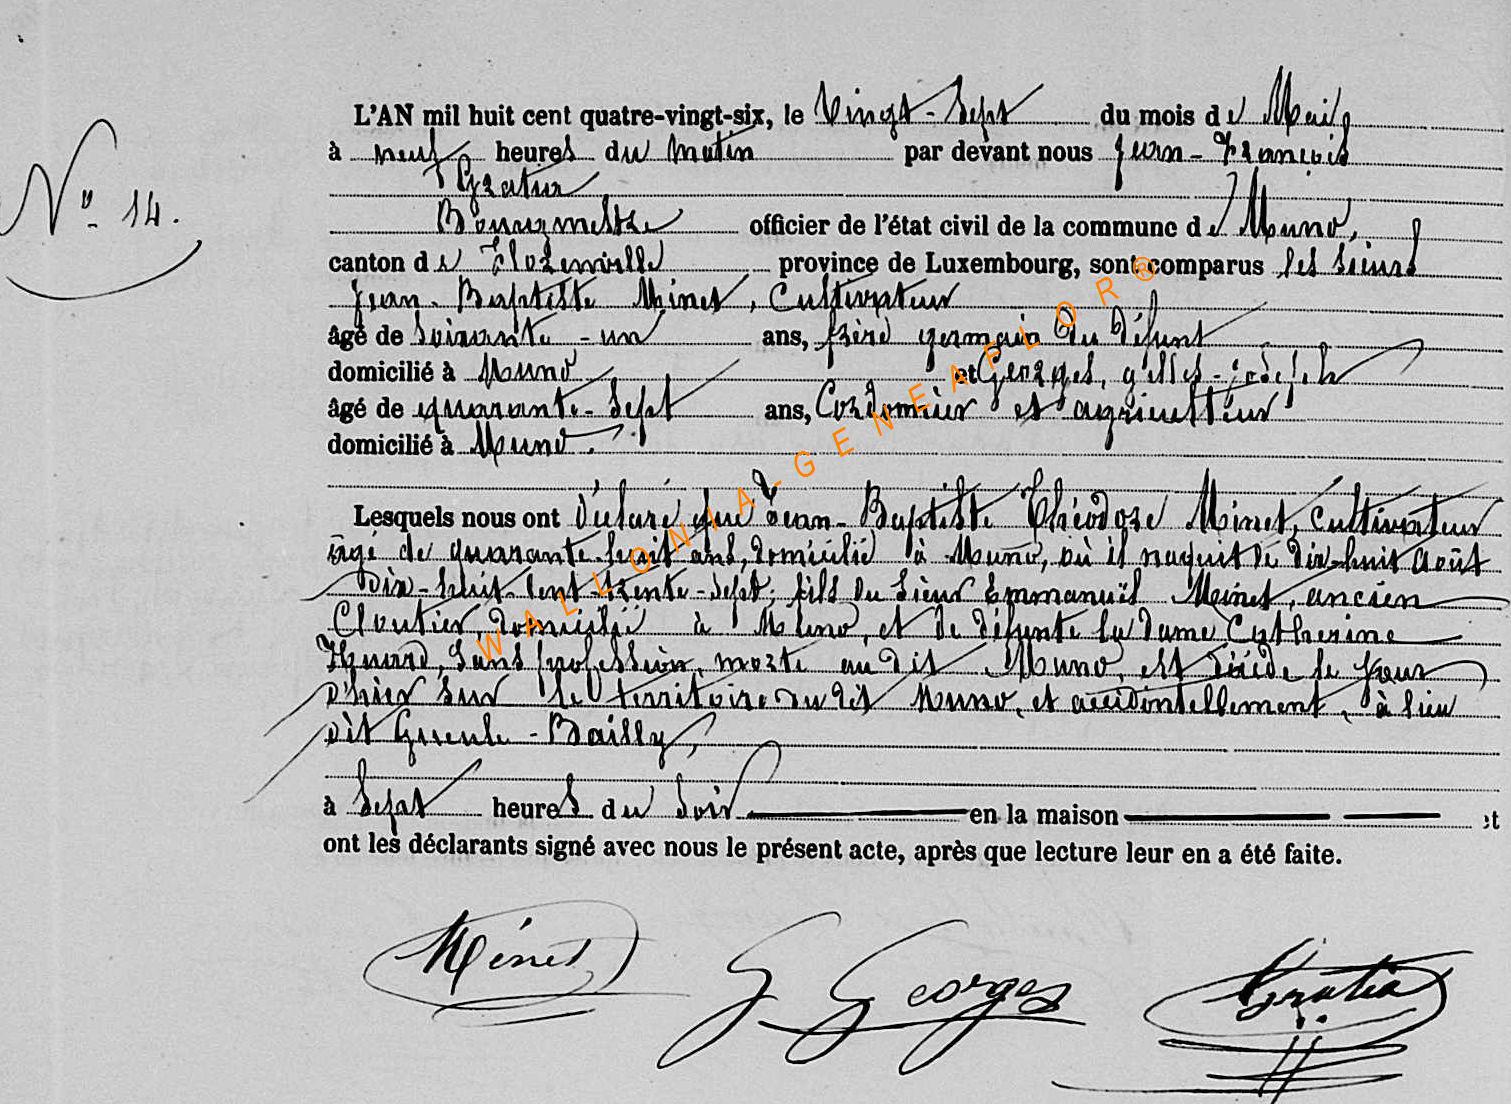 N° 14.
L'AN mil huit cent quatre-vingt-six, le Vingt-Sept du mois de Mai
à neuf heures du matin par devant nous Jean-François
Gratia
Bourgmestre officier de l'état civil de la commune de Muno,
canton de Florenville province de Luxembourg, sont comparus les sieurs
Jean-Baptiste Minet, Cultivateur
âgé de soixante-un ans, frère germain du défunt
domicilié à Muno et Georges, gilles-joseph
âgé de quarante-sept ans, Cordonnier et agriculteur
domicilié à Muno.
Lesquels nous ont déclaré que Jean-Baptiste Théodore Minet, cultivateur
âgé de quarante-huit ans, domicilié à Muno, où il naquit le dix-huit Août
dix-huit-cent-trente-sept, fils du sieur Emmanuël Minet, ancien
Cloutier, domicilié à Muno, et de défunte la dame Catherine
sans profession, morte au dit Muno, est décédé le jour
d'hier sur le territoire du dit Muno, et accidentellement, à lieu
dit Gueule-Bailly,
à Sept heures du Soir en la maison et
ont les déclarants signé avec nous le présent acte, après que lecture leur en a été faite.
Minet G Georges Gratia
WALLONIA-GENEAFLOR®